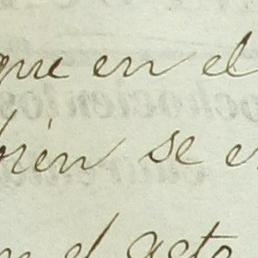 que en el
bien se e
en el acto